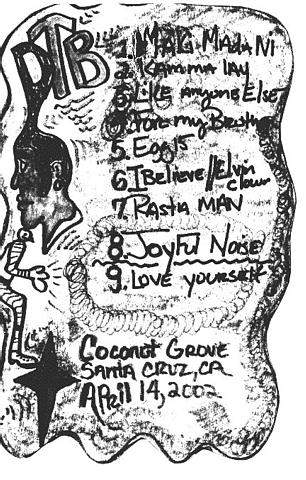 DTB
1. MAG. MADA NI
2. KAMMA LAY
3. Like Anyone Else
4. For my Brother
5. Eggs
6. I Believe // Elvin
7. Rasta MAN
8. Joyful Noise
9. Love Yourself
Coconut Grove
Santa Cruz, CA
April 14, 2002